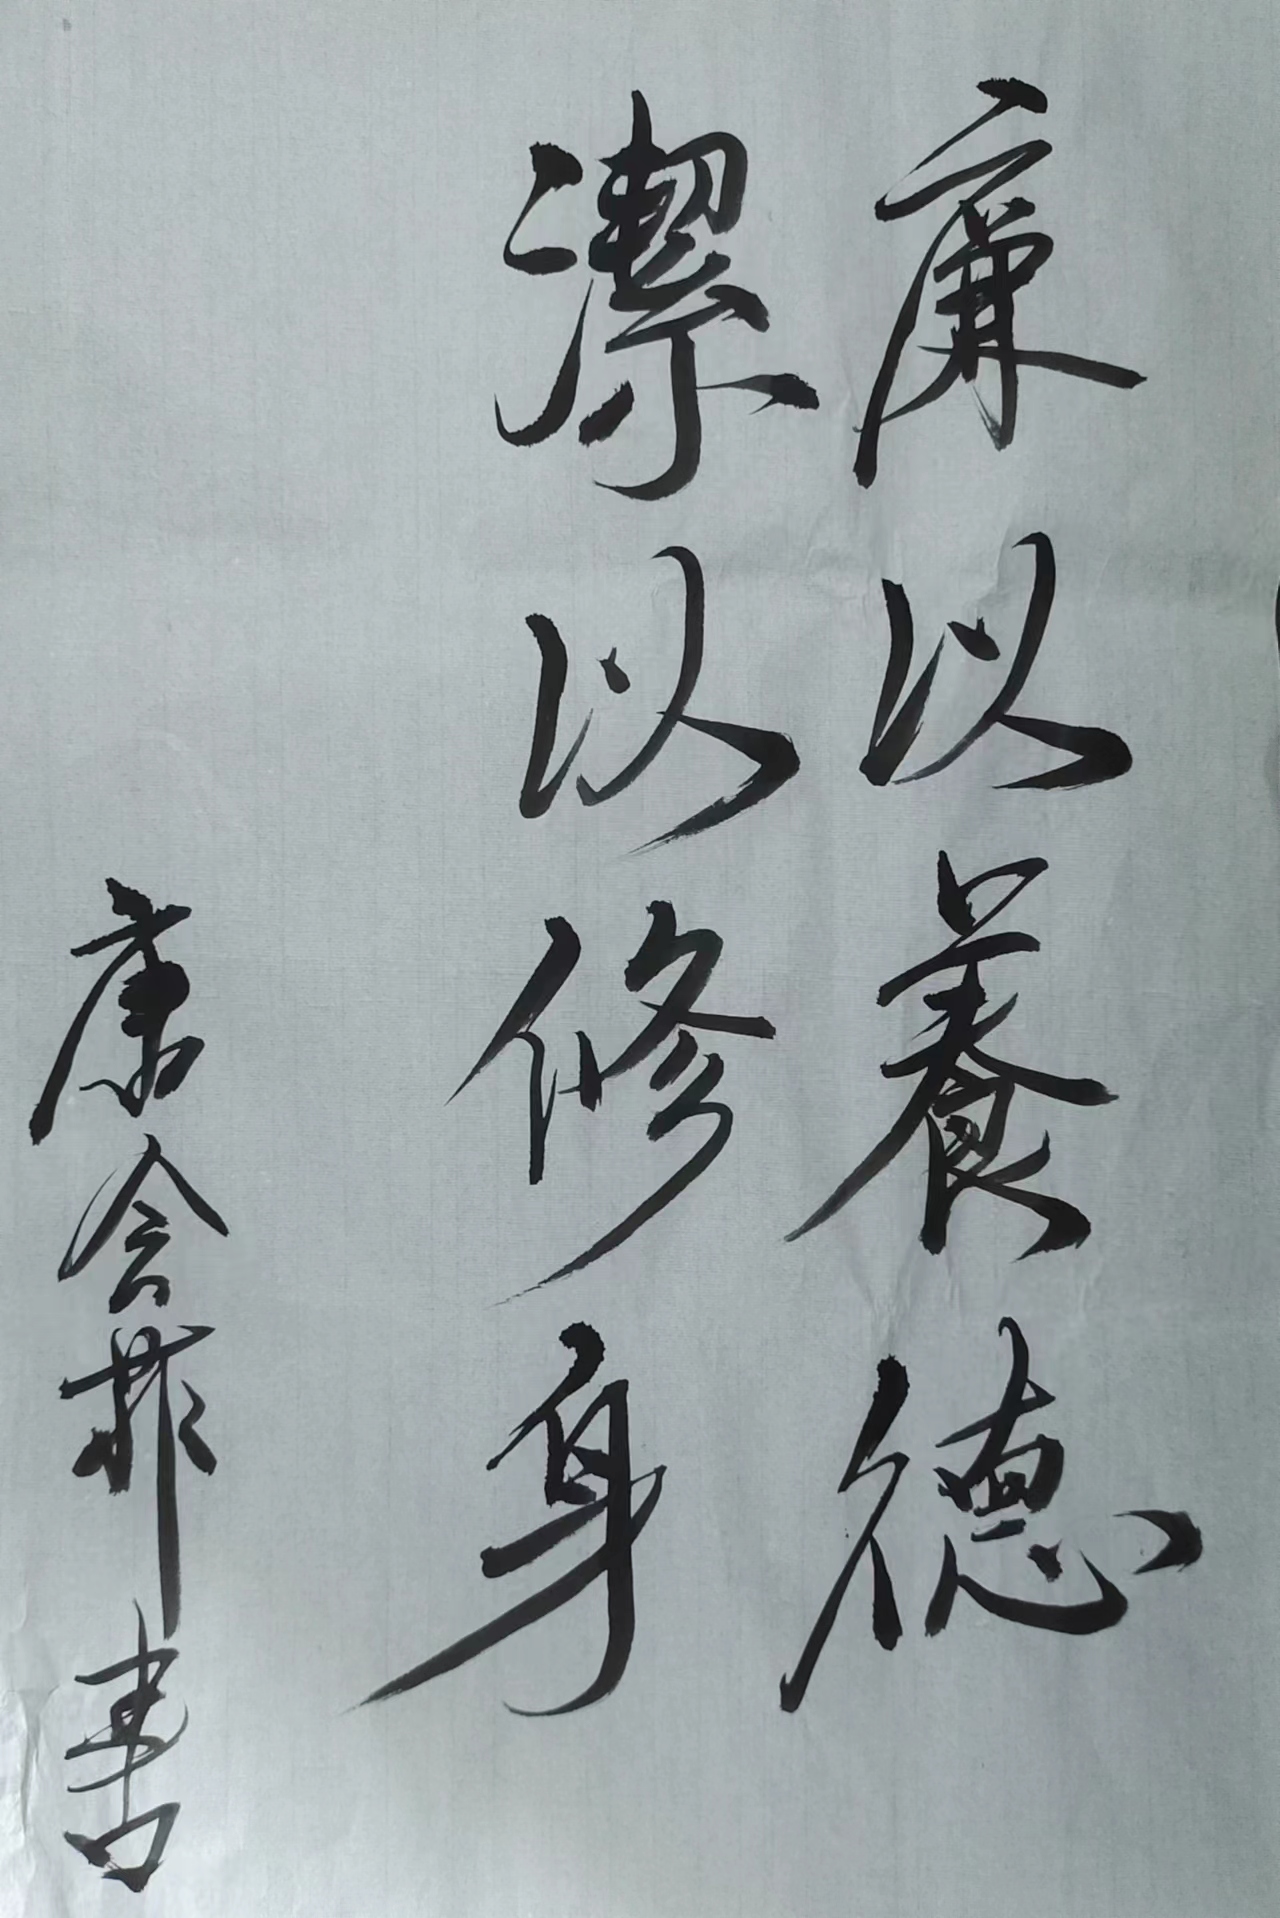 廉以養德
潔以修身
康会菲書